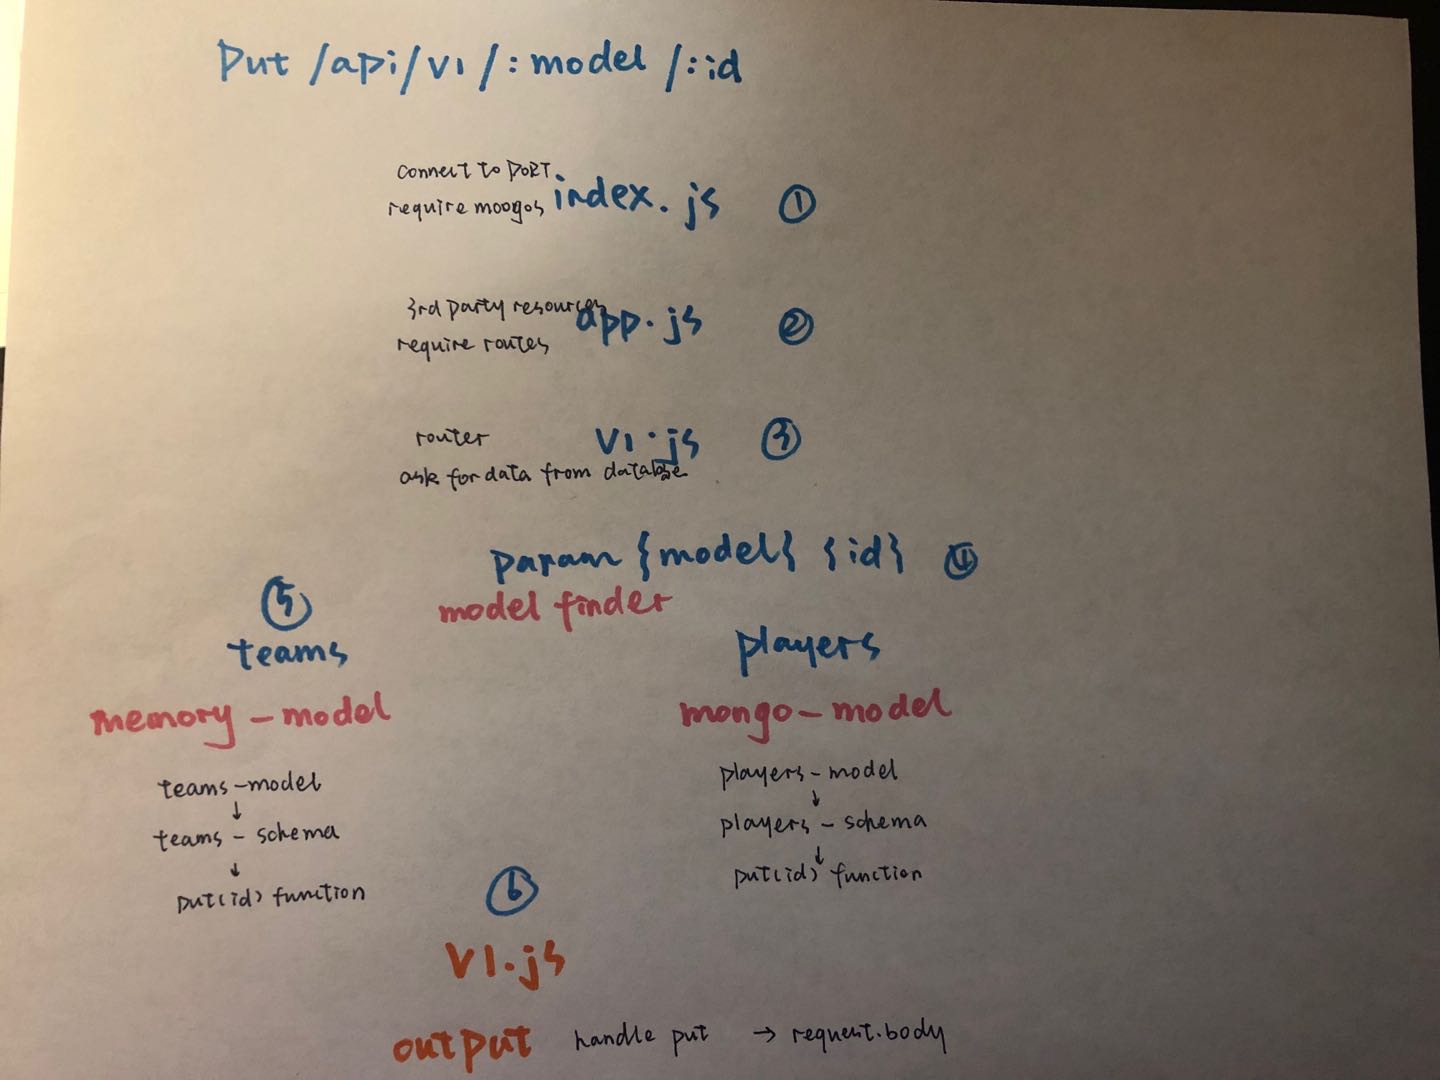 Put /api/v1/:model/:id
connect to PORT.
require moogos
index.js ①
3rd party resources
require routes
app.js ②
router
ask for data from database
v1.js ③
param {model} {id} ④
model finder
⑤
teams
players
memory-model
mongo-model
teams-model
↓
teams-schema
↓
put(id) function
players-model
↓
players-schema
↓
put(id) function
⑥
V1.js
output handle put → request.body